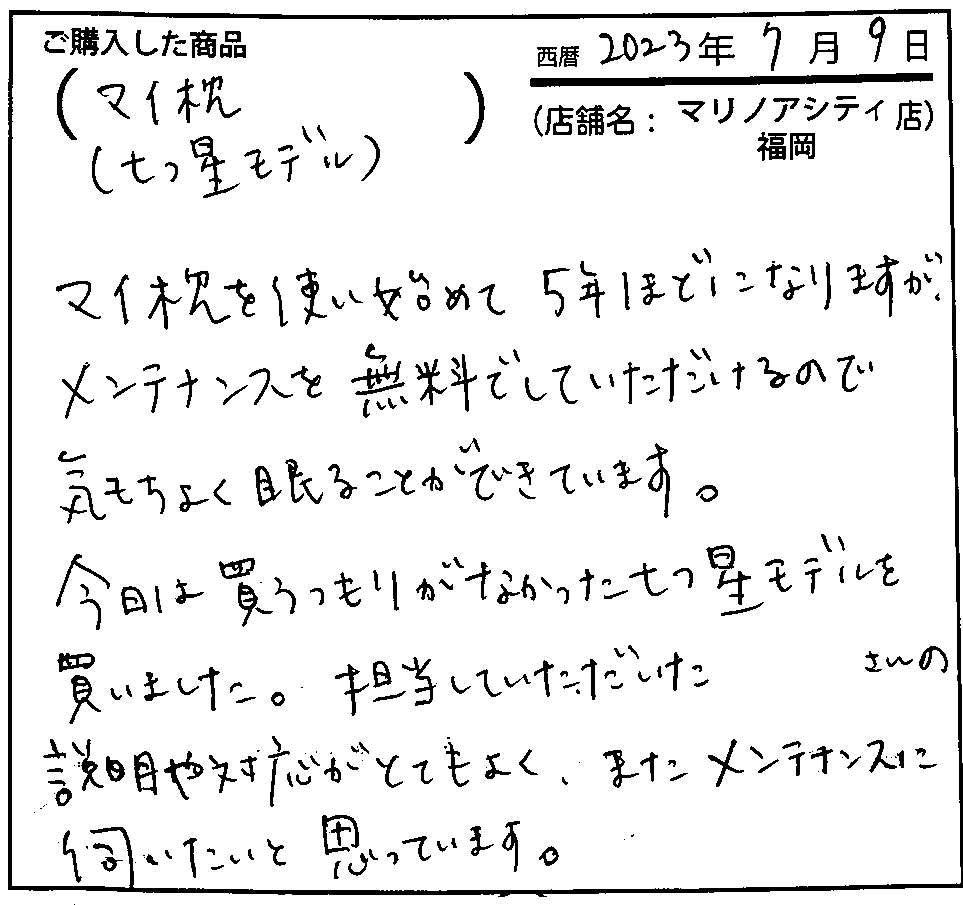 ご購入した商品
西暦 2023年 7月 9日
(マイ枕
(七つ星モデル)
)
(店舗名: マリノアシティ 店)
福岡
マイ枕を使い始めて5年ほどになりますが、
メンテナンスを無料でしていただけるので
気もちよく眠ることができています。
今日は買うつもりがなかった七つ星モデルを
買いました。担当していただいた さんの
説明や対応がとてもよく、またメンテナンスに
伺いたいと思っています。